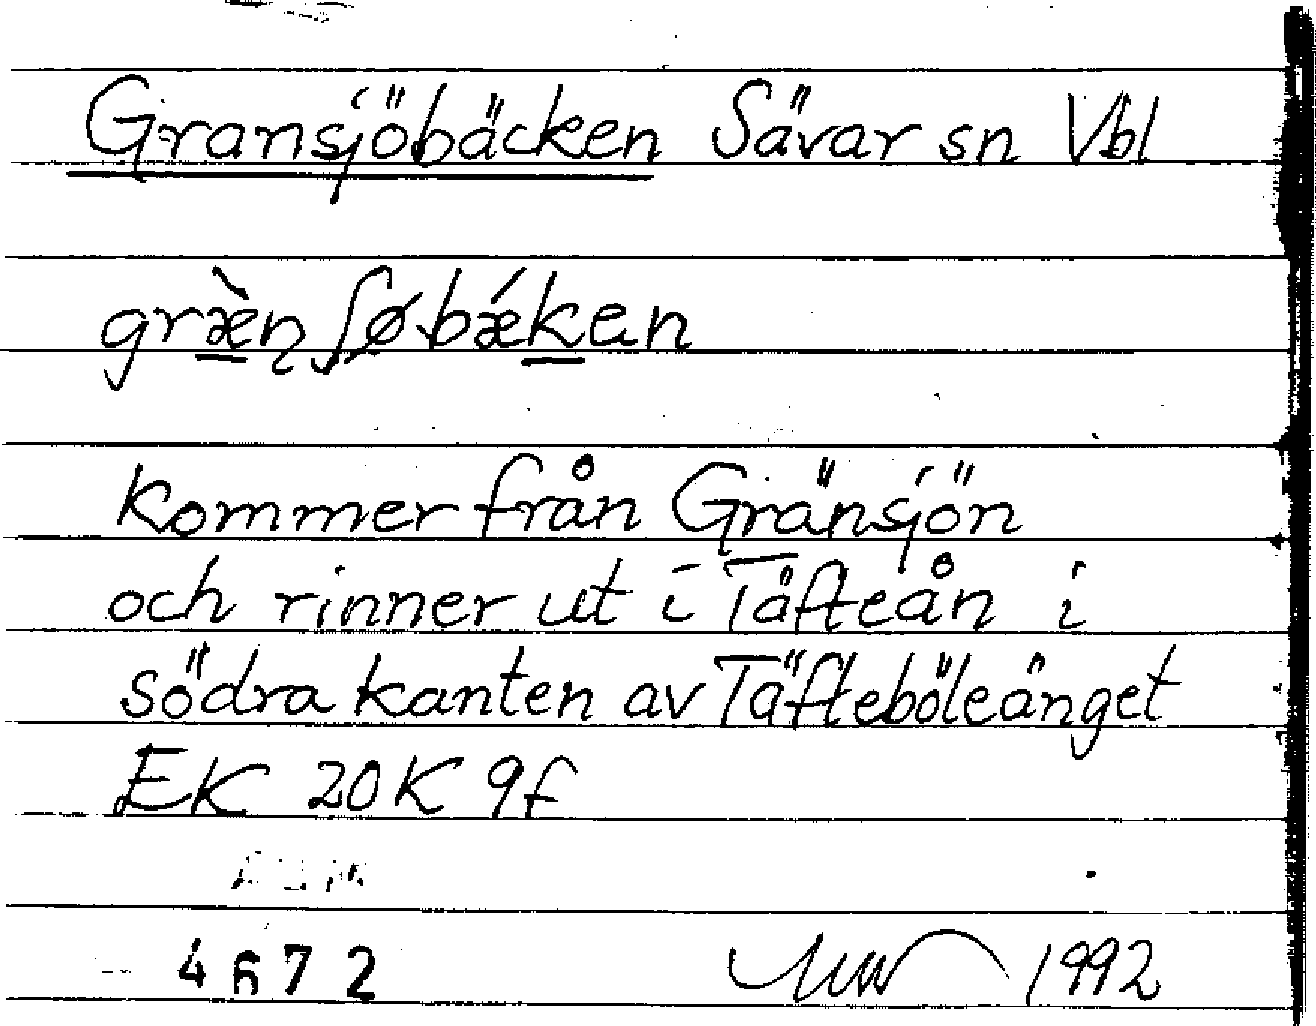 Gransjöbäcken Sävar sn Vbl
græ̀nʃøbǽken
Kommer från Gränsjön
och rinner ut i Tåfteån i
södra kanten av Täfteböleänget
EK 20K 9f
4672 1992